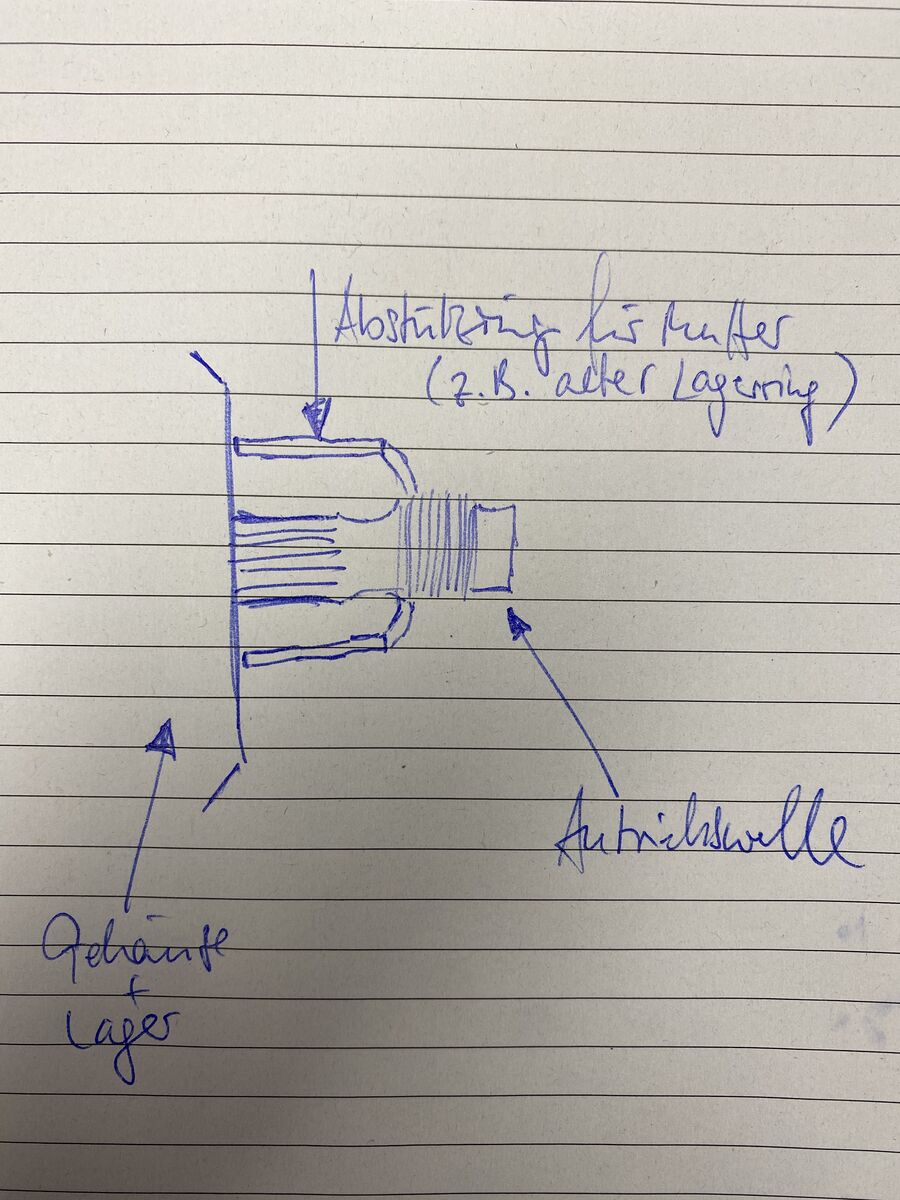 Abstützring für Mutter
(z.B. alter Lagerring)
Antriebswelle
Gehäuse
+
Lager